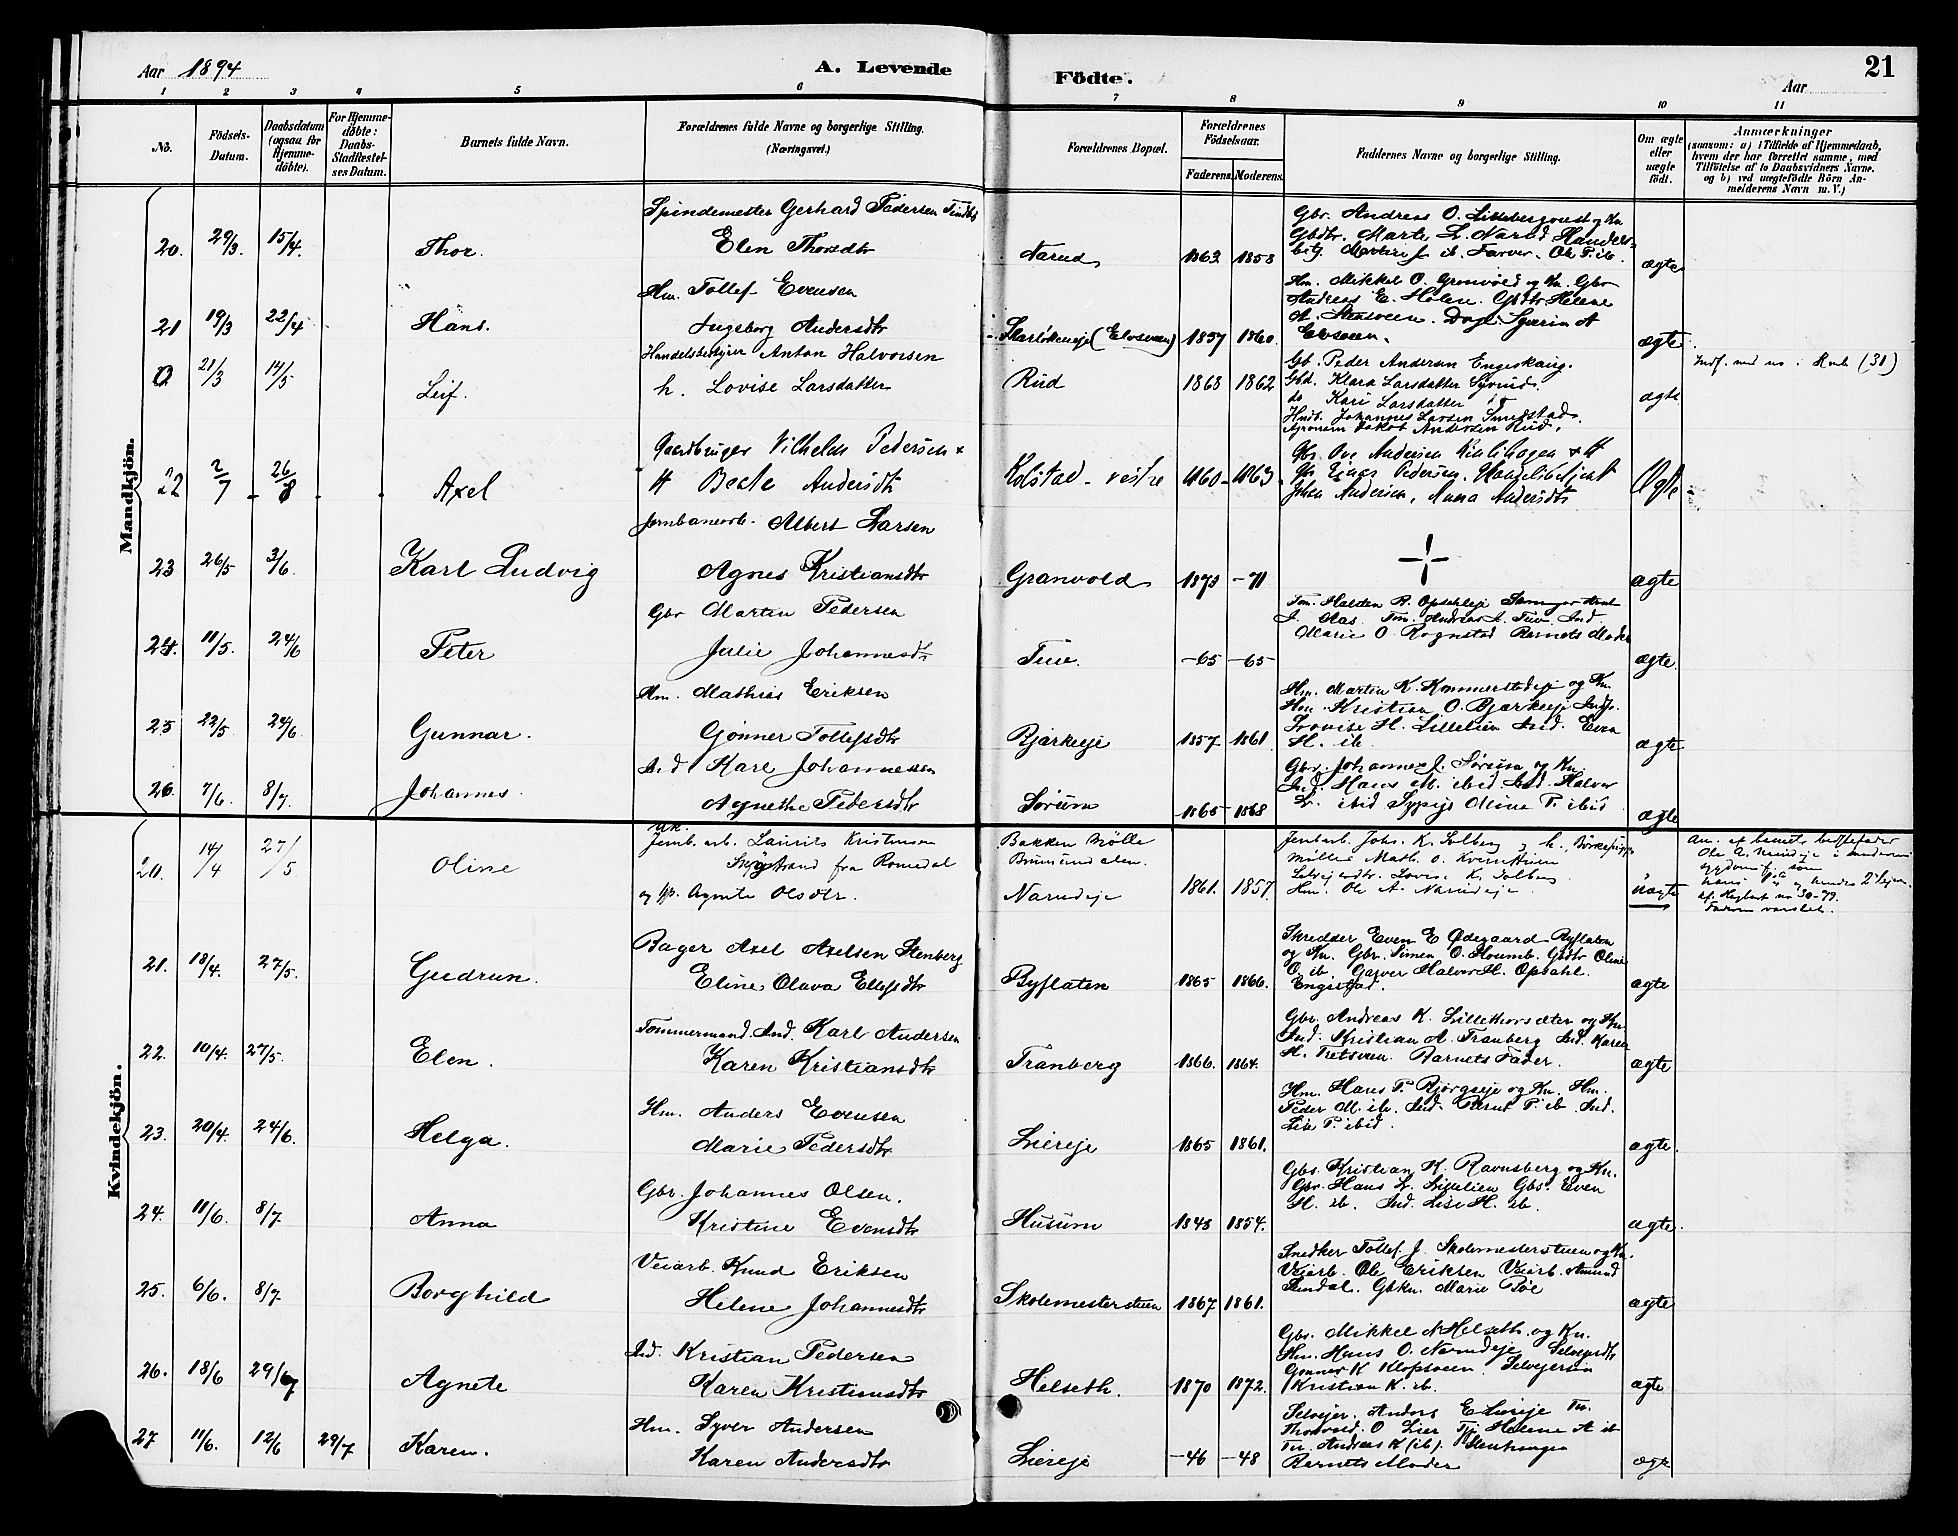 Aar 1894
A. Levende
Födte.
21
Aar
1 2 3 4 5 6 7 8 9 10 11
No.
Födsels-
Datum.
Daabsdatum
(ogsaa for
Hjemme-
döbte).
For Hjemme-
döbte:
Daabs-
Stadfæstel-
ses Datum.
Barnets fulde Navn.
Forældrenes fulde Navne og borgerlige Stilling.
(Næringsvei.)
Forældrenes Bopæl.
Forældrenes
Födselsaar.
Faderens. Moderens.
Faddernes Navne og borgerlige Stilling.
Om ægte
eller
uægte
född.
Anmærkninger
(saasom: a) i Tilfælde af Hjemmedaab,
hvem der har forrettet samme, med
Tilföielse af to Daabsvidners Navne,
og b) ved uægtefödte Börn An-
melderens Navn m. V.)
Mandkjön.
20. 29/3. 15/4. Thor.
Spindemester Gerhard Pedersen
Elen Thorsdtr
Narud 1863 1858
Gbr. Andreas O. Lillebergquist og Kn
Gbdtr. Marte L. Narud Handels-
betj. Martin J. ib. Farver. Ole T. ib.
ægte
21 19/3 22/4 Hans.
Hm. Tollef Evensen
Ingeborg Andersdtr
(Elvseveen) 1857 1860.
Hm. Mikkel O. Grønvold og Kn. Gbr
Andreas E. Holen. Gbdtr Helene
A.
ægte
0. 21/3 14/5 Leif.
Handelsbestyrer Anton Halvorsen
h. Lovise Larsdatter
Rud 1868 1862
Gb. Peder Andersen Engeskaug.
Gbd. Klara Larsdatter
do Kari Larsdatter
Hndb. Johannes Larsen Smedstad.
Agronom Jakob Andersen Rud.
ægte
Indf. med no. i Rule (31)
22 2/7 - 26/8 - Axel
Gaardbruger Vilhelm Pedersen +
H Beate Andersdt
Kolstad - vestre 1860 - 1863 -
Gbr Ove Andersen Kinlihagen + H
Gbr Einar Pedersen, Handelsbetjent
Johan Andersen, Anna Andersdtr
Ægte
23 26/5 3/6. Karl Ludvig
Jernbanearb. Albert Larsen
Agnes Kristiansdtr
Granvold 1873 -71
ægte
24. 11/5. 24/6 Peter
Gbr Martin Pedersen
Julie Johannesdtr
Tuv. -65 -65
J. Aas. Tm. Andreas J. Tuv. Ind.
Marie O. Rognstad Barnets Moder
ægte.
25 22/5. 24/6. Gunnar.
Hm. Mathias Eriksen
Gønner Tollefsdtr
Bjørkeeje 1857 1861
Hm. Martin K. Kommerstadeje og Kn.
Hm. Kristian O. Bjørkeeje Inds.
Lovise H. Lillelien Ind. Even
H. ib.
ægte
26. 7/6. 8/7. Johannes.
Ind Karl Johannesen
Agnethe Pedersdtr
Sørum 1865 1868
Gbr. Johannes J. Sørum og Kn.
Ind. Hans M. ibid Ind. Halvor
L. ibid Sypige Mina P. ibid
ægte
Kvindekjön.
20. 14/4 27/5 Oline
Uk.
Jernb.arb. Laurits Kristensen
fra Romedal
og Agnete Olsdtr.
Bakken Mölle
Brumunddalen.
Narudeje 1861. 1857.
Jernbarb. Johs. K. Solberg og h.
Möller Math. O.
Lovise K. Solberg
Hm. Ole A. Narudeje.
uægte
Ole A. Narudeje
Faderen varslet.
21. 18/4. 27/5. Gudrun.
Bager Axel Axelsen Stenberg
Eline Olava Ellefsdtr
Byflaten 1865 1866.
Skredder Even E Ødegaard Byflaten
og Kn. Gbr. Simen O. Houmb. Gbdtr Oline
O. ib. Garver Halvor H. Opsahl.
Engestad.
ægte
22. 10/4. 27/5. Elen.
Tømmermand. Ind. Karl Andersen
Karen Kristiansdtr
Trånberg 1866. 1864.
Gbr. Andreas K. Lillethorsæter og Kn.
Ind. Kristian A. Tranberg Ind. Karen
H. Barnets Fader.
ægte
23. 20/4. 24/6. Helga.
Hm. Anders Evensen
Marie Pedersdtr
Liereje 1865 1861.
Hm. Hans P. Bjørgseje og Kn. Hm.
Peder M. ib. Ind. P. ib Ind.
Lise P. ibid.
ægte.
24. 11/6. 8/7. Anna
Gbr. Johannes Olsen.
Kristine Evensdtr
Husum 1848 1854.
Gbs. Kristian K. Ravnsberg og Kn.
Gbr. Hans L. Lillelien Gbs. Even
H. ib. Ind. Lise H. ib.
ægte.
25. 6/6. 8/7. Borghild
Veiarb. Knud Eriksen
Helene Johannesdtr
Skolemesterstuen 1867 1861.
Snedker Tollef J. Skolemesterstuen og Kn.
Veiarb. Ole Eriksen Veiarb. Amund
Gbkn. Marie Böe
ægte
26. 18/6 29/7 Agnete
Ind. Kristian Pedersen
Karen Kristiansdtr
Helseth. 1870 1872.
Gbs. Mikkel N Helseth og Kn.
Hm. Hans O. Narudeje Selveierdtr
Gønner K Klopsveen Selvejersøn
Kristian K. ib.
ægte
27 11/6. 12/6 29/7 Karen.
Hm. Syver Andersen
Karen Andersdtr
Liereje -46 -48
Selvejer. Anders E Liereje Tn.
Thorvald. O Lier Tj. Helene A ib
Tn. Andreas K (ib). Stenhringen
Barnets Moder
ægte